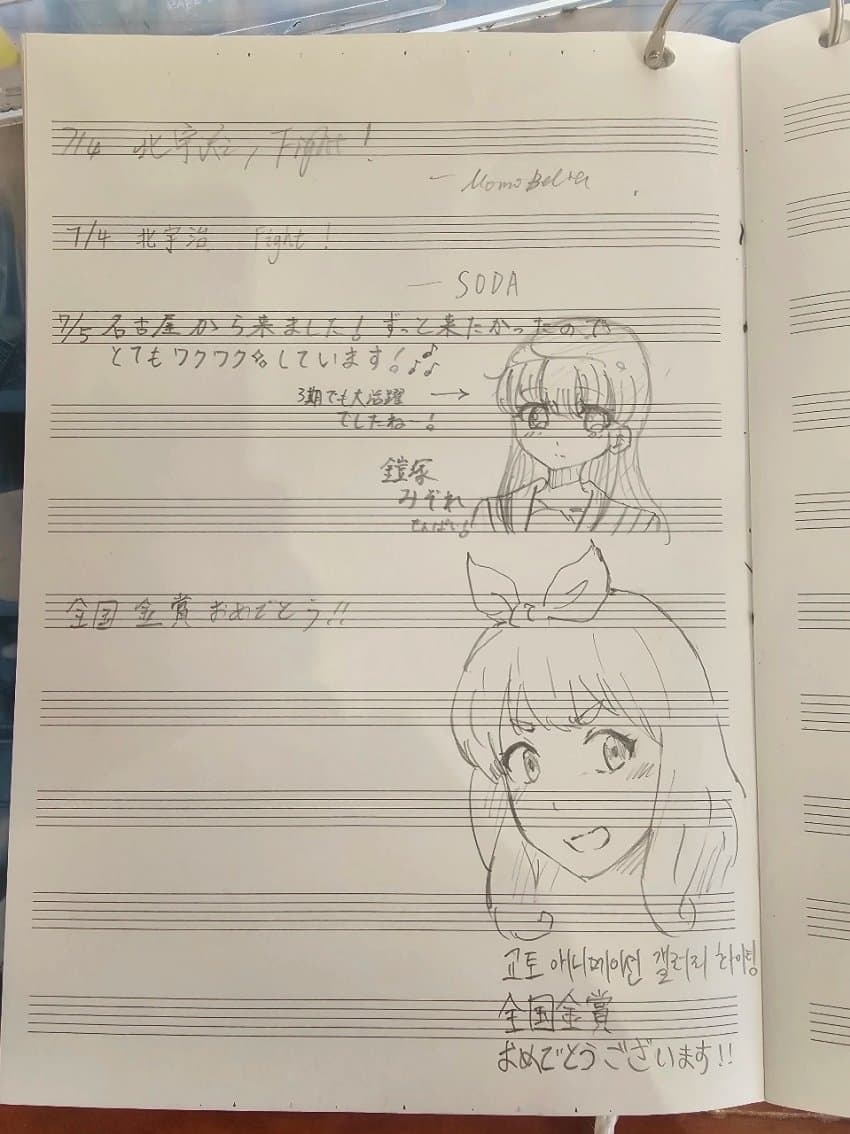 7/4 北宇治, Fight!
— Momo
7/4 北宇治 Fight!
— SODA
7/5 名古屋から来ました! ずっと来たかったので
とてもワクワクしています!
3期でも大活躍 →
でしたねー!
鎧塚
みぞれ
せんぱい!
全国 金賞 おめでとう!!
교토 애니메이션 갤러리 화이팅
全国金賞
おめでとうございます!!